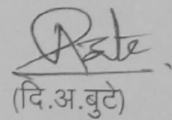 (दि.अ.बुटे)